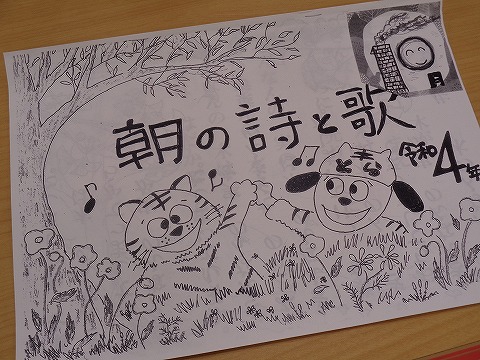 月
朝の詩と歌
令和4年
とら